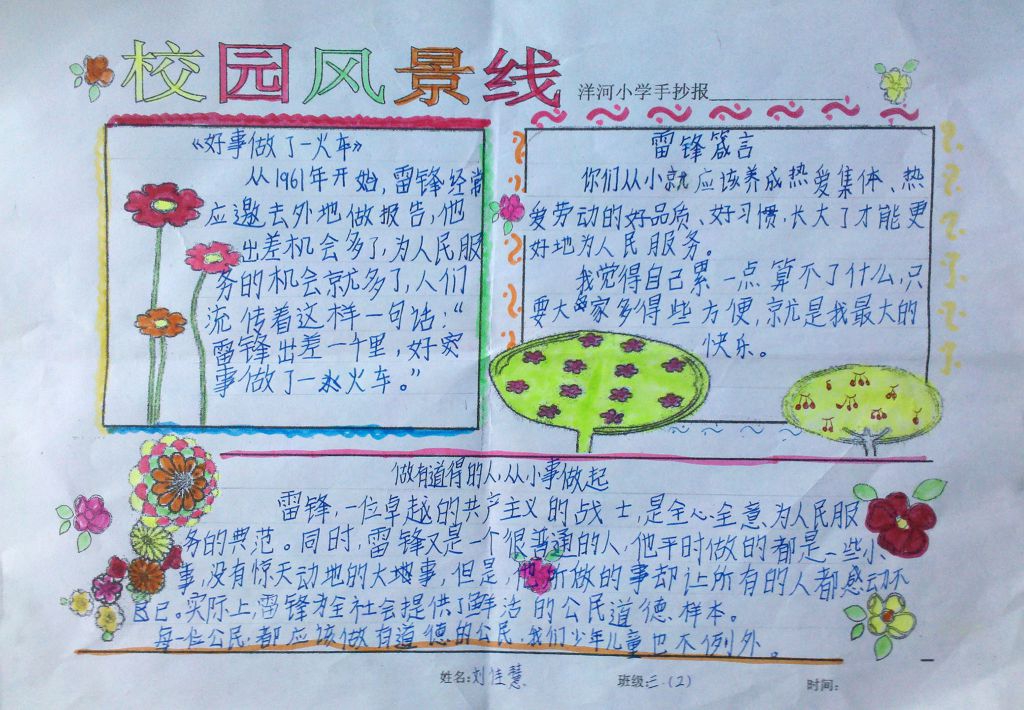 校园风景线
洋河小学手抄报
《好事做了一火车》
从1961年开始,雷锋经常
应邀去外地做报告,他
出差机会多了,为人民服
务的机会就多了,人们
流传着这样一句话:“
雷锋出差一千里,好
事做了一火车。”
雷锋箴言
你们从小就应该养成热爱集体、热
爱劳动的好品质、好习惯,长大了才能更
好地为人民服务。
我觉得自己累一点算不了什么,只
要大家多得些方便,就是我最大的
快乐。
做有道得的人,从小事做起
雷锋,一位卓越的共产主义的战士,是全心全意为人民服
务的典范。同时,雷锋又是一个很普通的人,他平时做的都是一些小
事,没有惊天动地的大事,但是,他所做的事却让所有的人都感动不
已。实际上,雷锋为全社会提供了鲜活的公民道德样本。
每一位公民都应该做有道德的公民,我们少年儿童也不例外。
姓名:刘佳慧
班级:三.(2)
时间: